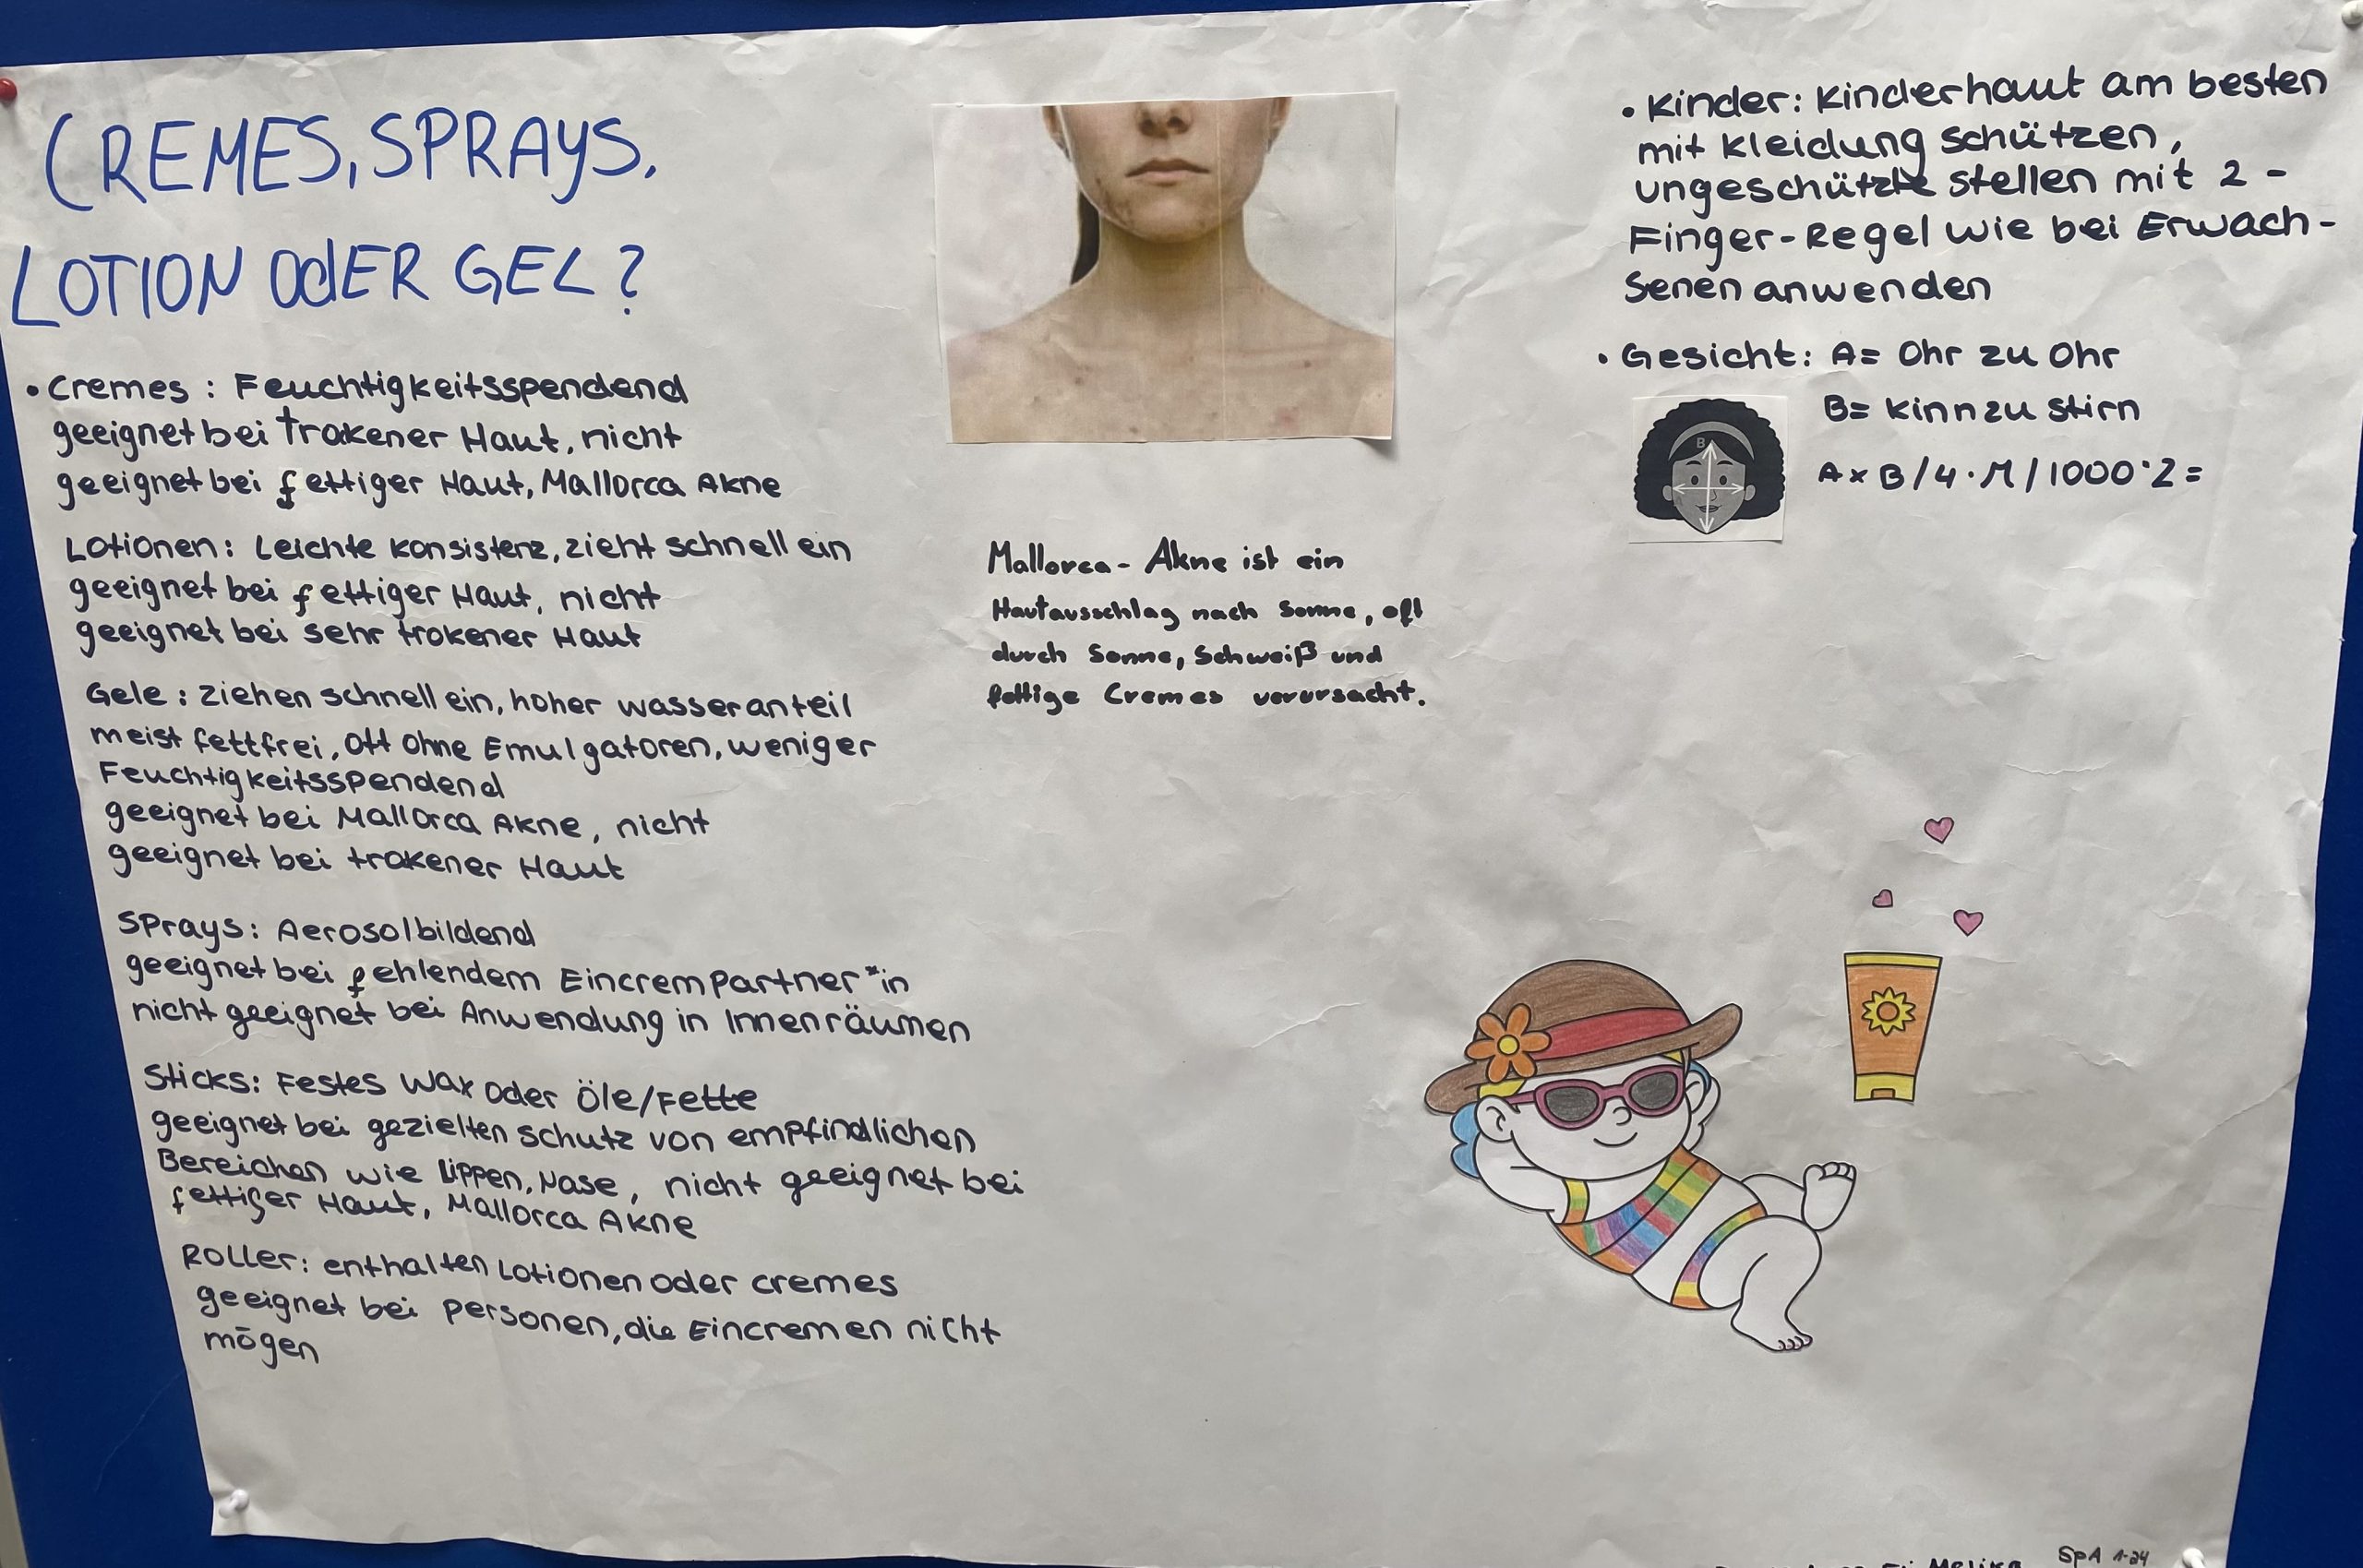 CREMES, SPRAYS,
LOTION OdER GEL?
• Cremes : Feuchtigkeitsspendend
geeignet bei trokener Haut, nicht
geeignet bei fettiger Haut, Mallorca Akne
Lotionen: Leichte Konsistenz, zieht schnell ein
geeignet bei fettiger Haut, nicht
geeignet bei sehr trokener Haut
Gele : ziehen schnell ein, hoher wasseranteil
meist fettfrei, oft ohne Emulgatoren, weniger
Feuchtigkeitsspendend
geeignet bei Mallorca Akne, nicht
geeignet bei trokener Haut
Sprays: Aerosolbildend
geeignet bei fehlendem Eincrempartner*in
nicht geeignet bei Anwendung in Innenräumen
Sticks: Festes Wax oder Öle/Fette
geeignet bei gezielten schutz von empfindlichen
Bereichen wie Lippen, Nase, nicht geeignet bei
fettiger Haut, Mallorca Akne
Roller: enthalten Lotionen oder cremes
geeignet bei personen, die Eincremen nicht
mögen
Mallorca-Akne ist ein
Hautausschlag nach Sonne, oft
durch Sonne, Schweiß und
fettige Cremes verursacht.
• Kinder: Kinderhaut am besten
mit Kleidung schützen,
ungeschützte stellen mit 2-
Finger-Regel wie bei Erwach-
senen anwenden
• Gesicht: A= Ohr zu Ohr
B= Kinn zu Stirn
A x B / 4 · π / 1000 · 2 =
B
SpA 1-24
Melika